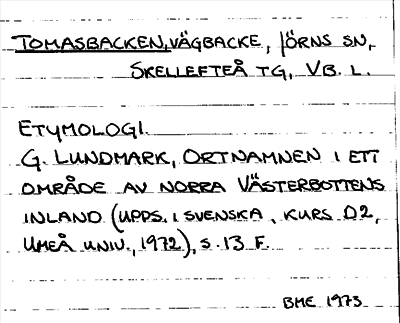 TOMASBACKEN, VÄGBACKE, JÖRNS SN,
SKELLEFTEÅ TG, VB. L.
ETYMOLOGI.
G. LUNDMARK, ORTNAMNEN I ETT
OMRÅDE AV NORRA VÄSTERBOTTENS
INLAND (UPPS. I SVENSKA, KURS D2,
UMEÅ UNIV., 1972), S. 13 F.
BME 1973